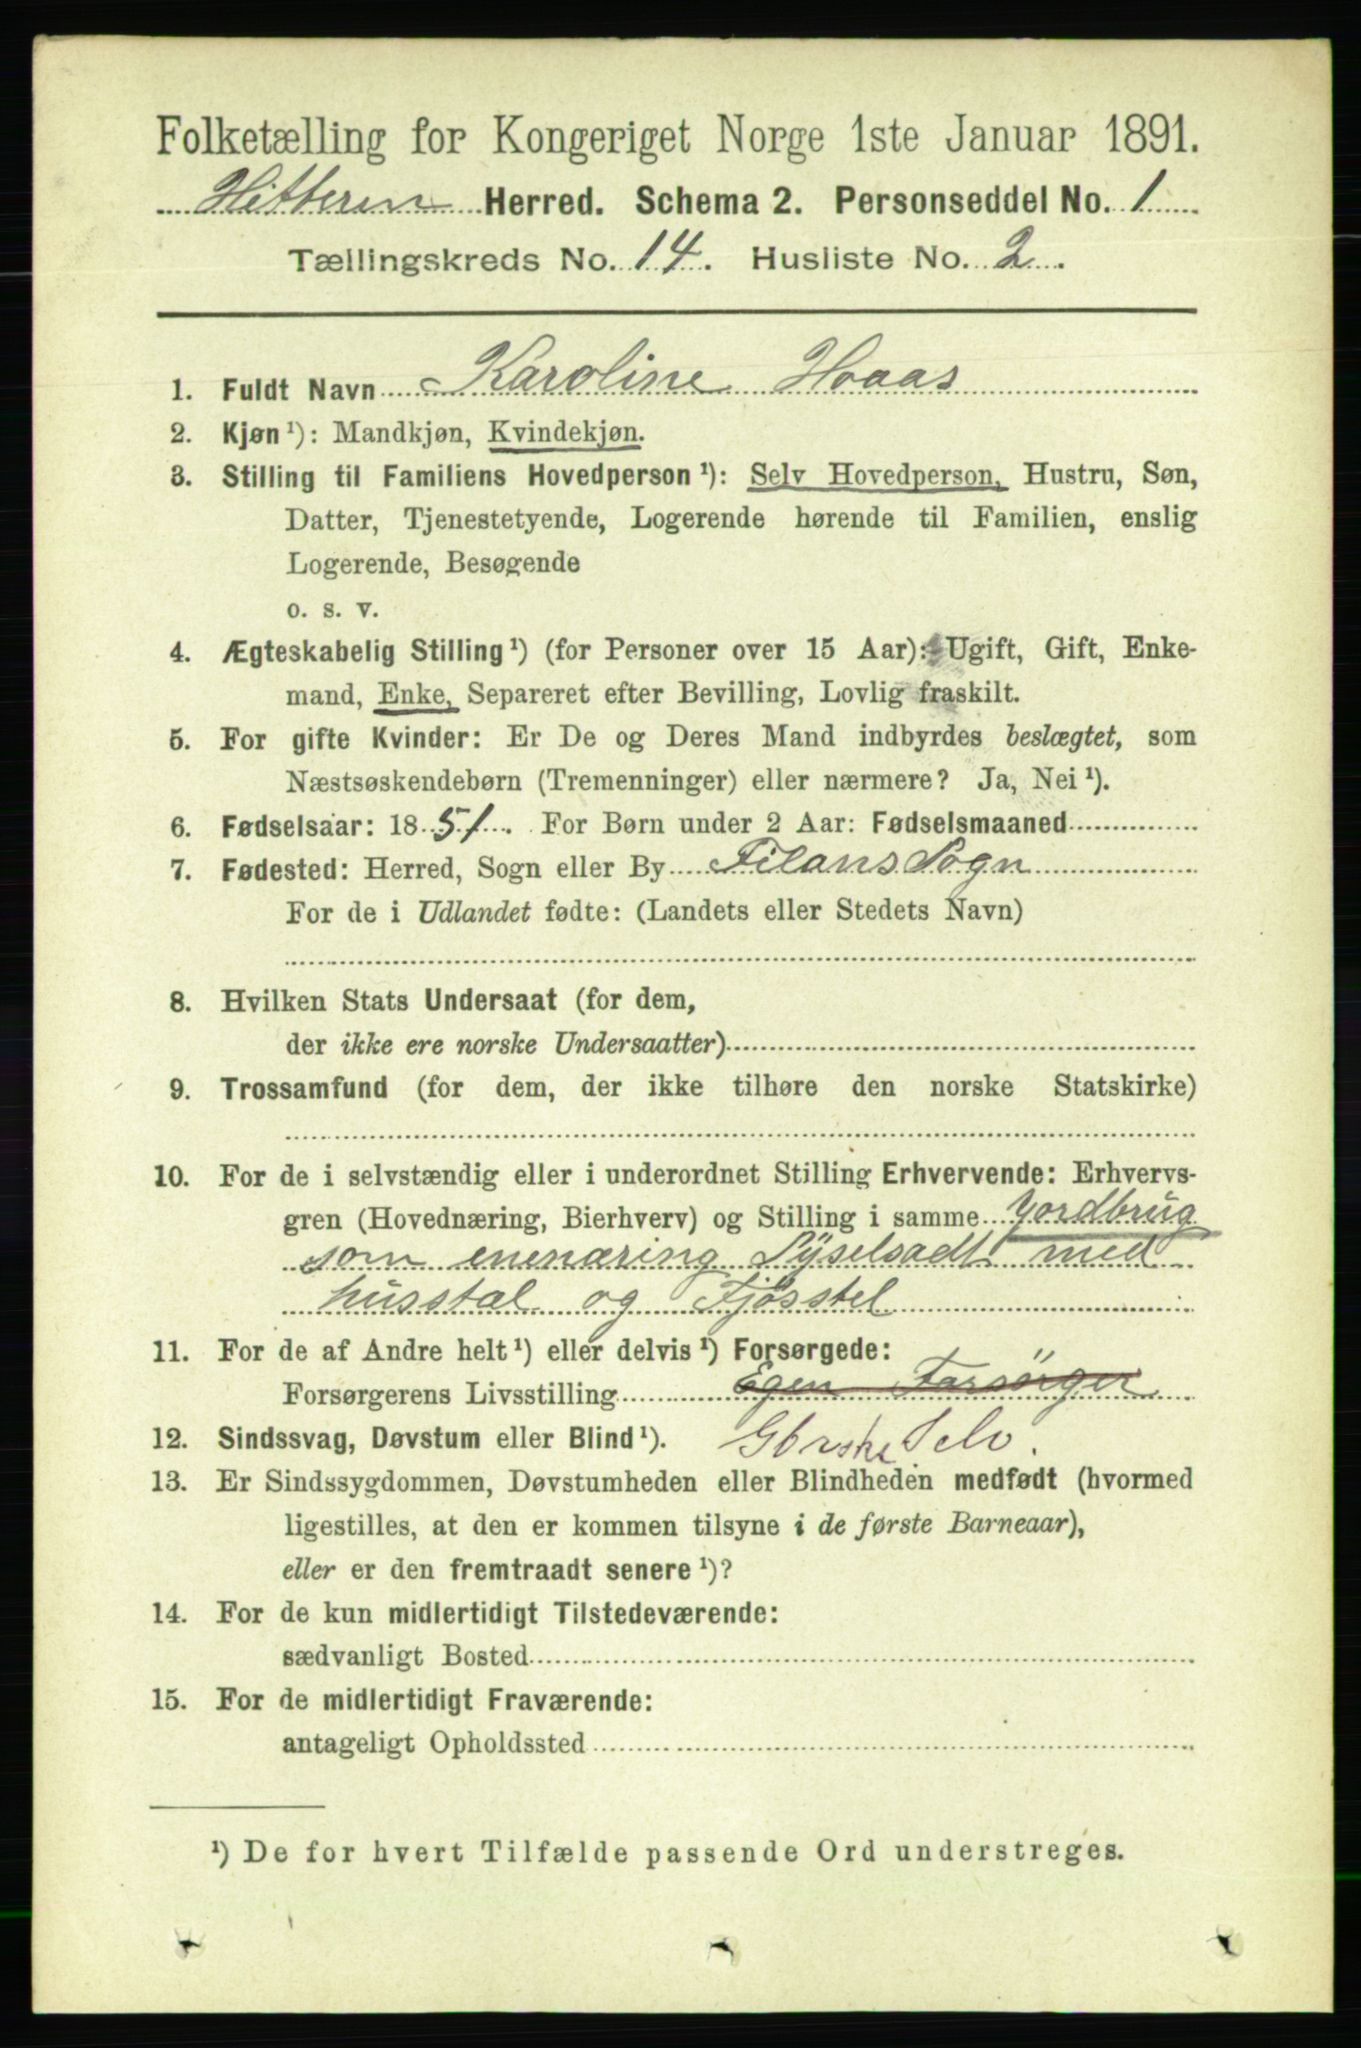 Folketælling for Kongeriget Norge 1ste Januar 1891.
Hitteren Herred. Schema 2. Personseddel No. 1
Tællingskreds No. 14. Husliste No. 2.
1. Fuldt Navn Karoline Haas
2. Kjøn ¹): Mandkjøn, Kvindekjøn.
3. Stilling til Familiens Hovedperson ¹): Selv Hovedperson, Hustru, Søn,
Datter, Tjenestetyende, Logerende hørende til Familien, enslig
Logerende, Besøgende
o. s. v.
4. Ægteskabelig Stilling ¹) (for Personer over 15 Aar): Ugift, Gift, Enke-
mand, Enke, Separeret efter Bevilling, Lovlig fraskilt.
5. For gifte Kvinder: Er De og Deres Mand indbyrdes beslægtet, som
Næstsøskendebørn (Tremenninger) eller nærmere? Ja, Nei ¹).
6. Fødselsaar: 1851. For Børn under 2 Aar: Fødselsmaaned
7. Fødested: Herred, Sogn eller By Filans Sogn
For de i Udlandet fødte: (Landets eller Stedets Navn)
8. Hvilken Stats Undersaat (for dem,
der ikke ere norske Undersaatter)
9. Trossamfund (for dem, der ikke tilhøre den norske Statskirke)
10. For de i selvstændig eller i underordnet Stilling Erhvervende: Erhvervs-
gren (Hovednæring, Bierhverv) og Stilling i samme Jordbrug
som enenæring Sÿselsadt med
husstel og Fjøsstel
11. For de af Andre helt ¹) eller delvis ¹) Forsørgede:
Forsørgerens Livsstilling Egen Forsörger
12. Sindssvag, Døvstum eller Blind ¹). Selv.
13. Er Sindssygdommen, Døvstumheden eller Blindheden medfødt (hvormed
ligestilles, at den er kommen tilsyne i de første Barneaar),
eller er den fremtraadt senere ¹)?
14. For de kun midlertidigt Tilstedeværende:
sædvanligt Bosted
15. For de midlertidigt Fraværende:
antageligt Opholdssted
¹) De for hvert Tilfælde passende Ord understreges.